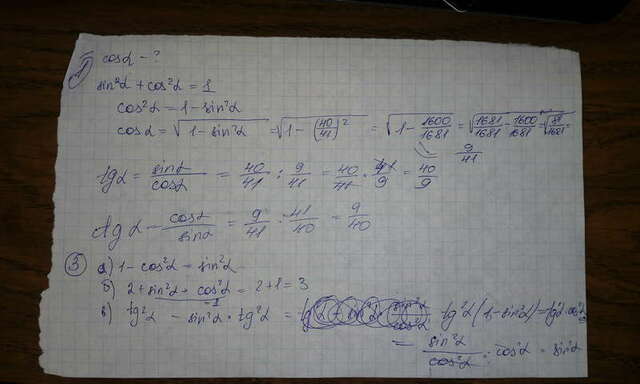 1) cosα - ?
sin²α + cos²α = 1
cos²α = 1 - sin²α
cosα = √(1 - sin²α) = √(1 - (40/41)²) = √(1 - 1600/1681) = √(1681/1681 - 1600/1681) = √(81/1681) = 9/41
tgα = sinα/cosα = 40/41 : 9/41 = 40/41 · 41/9 = 40/9
ctgα = cosα/sinα = 9/41 · 41/40 = 9/40
3) а) 1 - cos²α = sin²α
б) 2 + sin²α + cos²α = 2 + 1 = 3
в) tg²α - sin²α · tg²α = tg²α (1 - sin²α) = tg²α · cos²α
= sin²α/cos²α · cos²α = sin²α